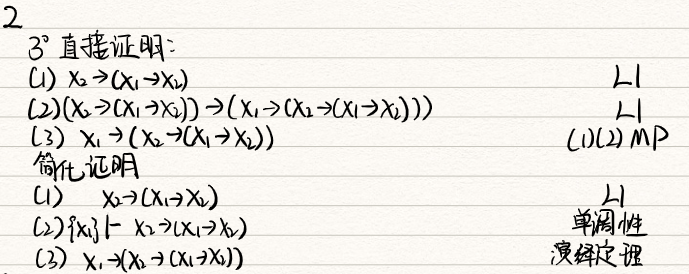 2
3° 直接证明:
(1) x₂→(x₁→x₂) L1
(2)(x₂→(x₁→x₂))→(x₁→(x₂→(x₁→x₂))) L1
(3) x₁→(x₂→(x₁→x₂)) (1)(2) MP
简化证明
(1) x₂→(x₁→x₂) L1
(2){x₁}⊢ x₂→(x₁→x₂) 单调性
(3) x₁→(x₂→(x₁→x₂)) 演绎定理